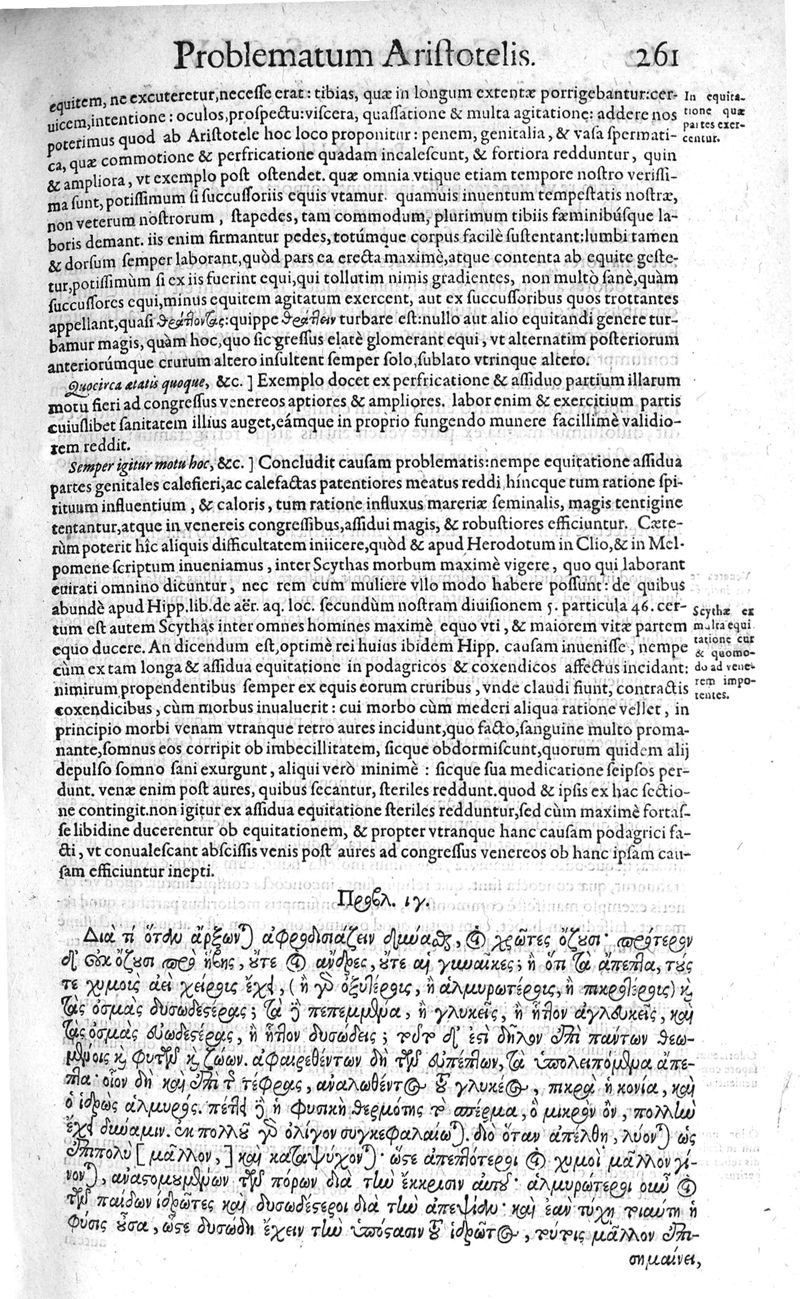 Problematum Aristotelis. 261
equitem, ne excuteretur, necesse erat: tibias, quæ in longum extentæ porrigebantur: cer-
uicem, intentione: oculos, prospectu: viscera, quassatione & multa agitatione: addere nos
poterimus quod ab Aristotele hoc loco proponitur: penem, genitalia, & vasa spermati-
ca, quæ commotione & perfricatione quadam incalescunt, & fortiora redduntur, quin
& ampliora, vt exemplo post ostendet. quæ omnia vtique etiam tempore nostro verissi-
ma sunt, potissimum si succussoriis equis vtamur. quamuis inuentum tempestatis nostræ,
non veterum nostrorum, stapedes, tam commodum, plurimum tibiis fæminibúsque la-
boris demant. iis enim firmantur pedes, totúmque corpus facilè sustentant: lumbi tamen
& dorsum semper laborant, quòd pars ea erecta maximè, atque contenta ab equite geste-
tur, potissimùm si ex iis fuerint equi, qui tollutim nimis gradientes, non multò sanè, quàm
succussores equi, minus equitem agitatum exercent, aut ex succussoribus quos trottantes
appellant, quasi θράτλοντας: quippe θράτλειν turbare est: nullo aut alio equitandi genere tur-
bamur magis, quàm hoc, quo sic gressus elatè glomerant equi, vt alternatim posteriorum
anteriorúmque crurum altero insultent semper solo, sublato vtrinque altero.
Quocirca ætatis quoque, &c. ] Exemplo docet ex perfricatione & assiduo partium illarum
motu fieri ad congressus venereos aptiores & ampliores. labor enim & exercitium partis
cuiuslibet sanitatem illius auget, eámque in proprio fungendo munere facillimè validio-
rem reddit.
Semper igitur motu hoc, &c. ] Concludit causam problematis: nempe equitatione assidua
partes genitales calefieri, ac calefactas patentiores meatus reddi, hincque tum ratione spi-
rituum influentium, & caloris, tum ratione influxus mareriæ seminalis, magis tentigine
tentantur, atque in venereis congressibus, assidui magis, & robustiores efficiuntur. Cæte-
rùm poterit hîc aliquis difficultatem iniicere, quòd & apud Herodotum in Clio, & in Mel-
pomene scriptum inueniamus, inter Scythas morbum maximè vigere, quo qui laborant
euirati omnino dicuntur, nec rem cum muliere vllo modo habere possunt: de quibus
abundè apud Hipp. lib. de aër. aq. loc. secundùm nostram diuisionem 5. particula 46. cer-
tum est autem Scythas inter omnes homines maximè equo vti, & maiorem vitæ partem
equo ducere. An dicendum est, optimè rei huius ibidem Hipp. causam inuenisse, nempe
cùm ex tam longa & assidua equitatione in podagricos & coxendicos affectus incidant:
nimirum propendentibus semper ex equis eorum cruribus, vnde claudi fiunt, contractis
coxendicibus, cùm morbus inualuerit: cui morbo cùm mederi aliqua ratione vellet, in
principio morbi venam vtranque retro aures incidunt, quo facto, sanguine multo proma-
nante, somnus eos corripit ob imbecillitatem, sicque obdormiscunt, quorum quidem alij
depulso somno sani exurgunt, aliqui verò minimè: sicque sua medicatione seipsos per-
dunt. venæ enim post aures, quibus secantur, steriles reddunt. quod & ipsis ex hac sectio-
ne contingit. non igitur ex assidua equitatione steriles redduntur, sed cùm maximè fortas-
se libidine ducerentur ob equitationem, & propter vtranque hanc causam podagrici fa-
cti, vt conualescant abscissis venis post aures ad congressus venereos ob hanc ipsam cau-
sam efficiuntur inepti.
In equita-
tione quæ
partes exer-
centur.
Scythæ ex
multa equi
tatione cur
& quomo-
do ad vene-
rem impo-
tentes.
Προβλ. ιγ.
Διὰ τί ὅταν ἄρξωνται ἀφροδισιάζειν δύνασθαι, οἱ χρῶτες ὄζουσι· πρότερον
δ' οὐκ ὄζουσι πρὸ ἥβης, οὔτε οἱ ἄνδρες, οὔτε αἱ γυναῖκες; ἢ ὅτι τὰ ἄπεπτα, τούς
τε χυμοὺς ἀεὶ χείροις ἔχει, (ἢ γὰρ ὀξυτέροις, ἢ ἁλμυρωτέροις, ἢ πικροτέροις) καὶ
τὰς ὀσμὰς δυσωδεστέρας; τὰ δὲ πεπεμμένα, ἢ γλυκεῖς, ἢ ἧττον ἀγλυκεῖς, καὶ
τὰς ὀσμὰς εὐωδεστέρας, ἢ ἧττον δυσώδεις; τοῦτο δ' ἐστὶ δῆλον ἐπὶ πάντων θεω-
μένοις καὶ φυτῶν καὶ ζώων. ἀφαιρεθέντων δὴ τῶν εὐπέπτων, τὰ ὑπολειπόμενα ἄπε-
πτα· οἷον δὴ καὶ ἐπὶ τῆς τέφρας, ἀναλωθέντος τοῦ γλυκέος, πικρὰ ἡ κονία, καὶ
ὁ ἱδρὼς ἁλμυρός. πέττει δὲ ἡ φυσικὴ θερμότης τὸ σπέρμα, ὃ μικρὸν ὂν, πολλὴν
ἔχει δύναμιν. ἐκ πολλοῦ γὰρ ὀλίγον συγκεφαλαίωται. διὸ ὅταν ἀπέλθῃ, λύονται ὡς
ἐπιπολὺ [ μᾶλλον, ] καὶ καταψύχονται· ὥστε ἀπεπτότεροι οἱ χυμοὶ μᾶλλον γί-
νονται, ἀναστομουμένων τῶν πόρων διὰ τὴν ἔκκρισιν αὐτοῦ· ἁλμυρώτεροι οὖν οἱ
τῶν παίδων ἱδρῶτες καὶ δυσωδέστεροι διὰ τὴν ἀπεψίαν· καὶ ἐὰν τύχῃ τοιαύτη ἡ
φύσις οὖσα, ὥστε δυσώδη ἔχειν τὴν ὑπόστασιν τοῦ ἱδρῶτος, τούτοις μᾶλλον ἐπι-
σημαίνει,